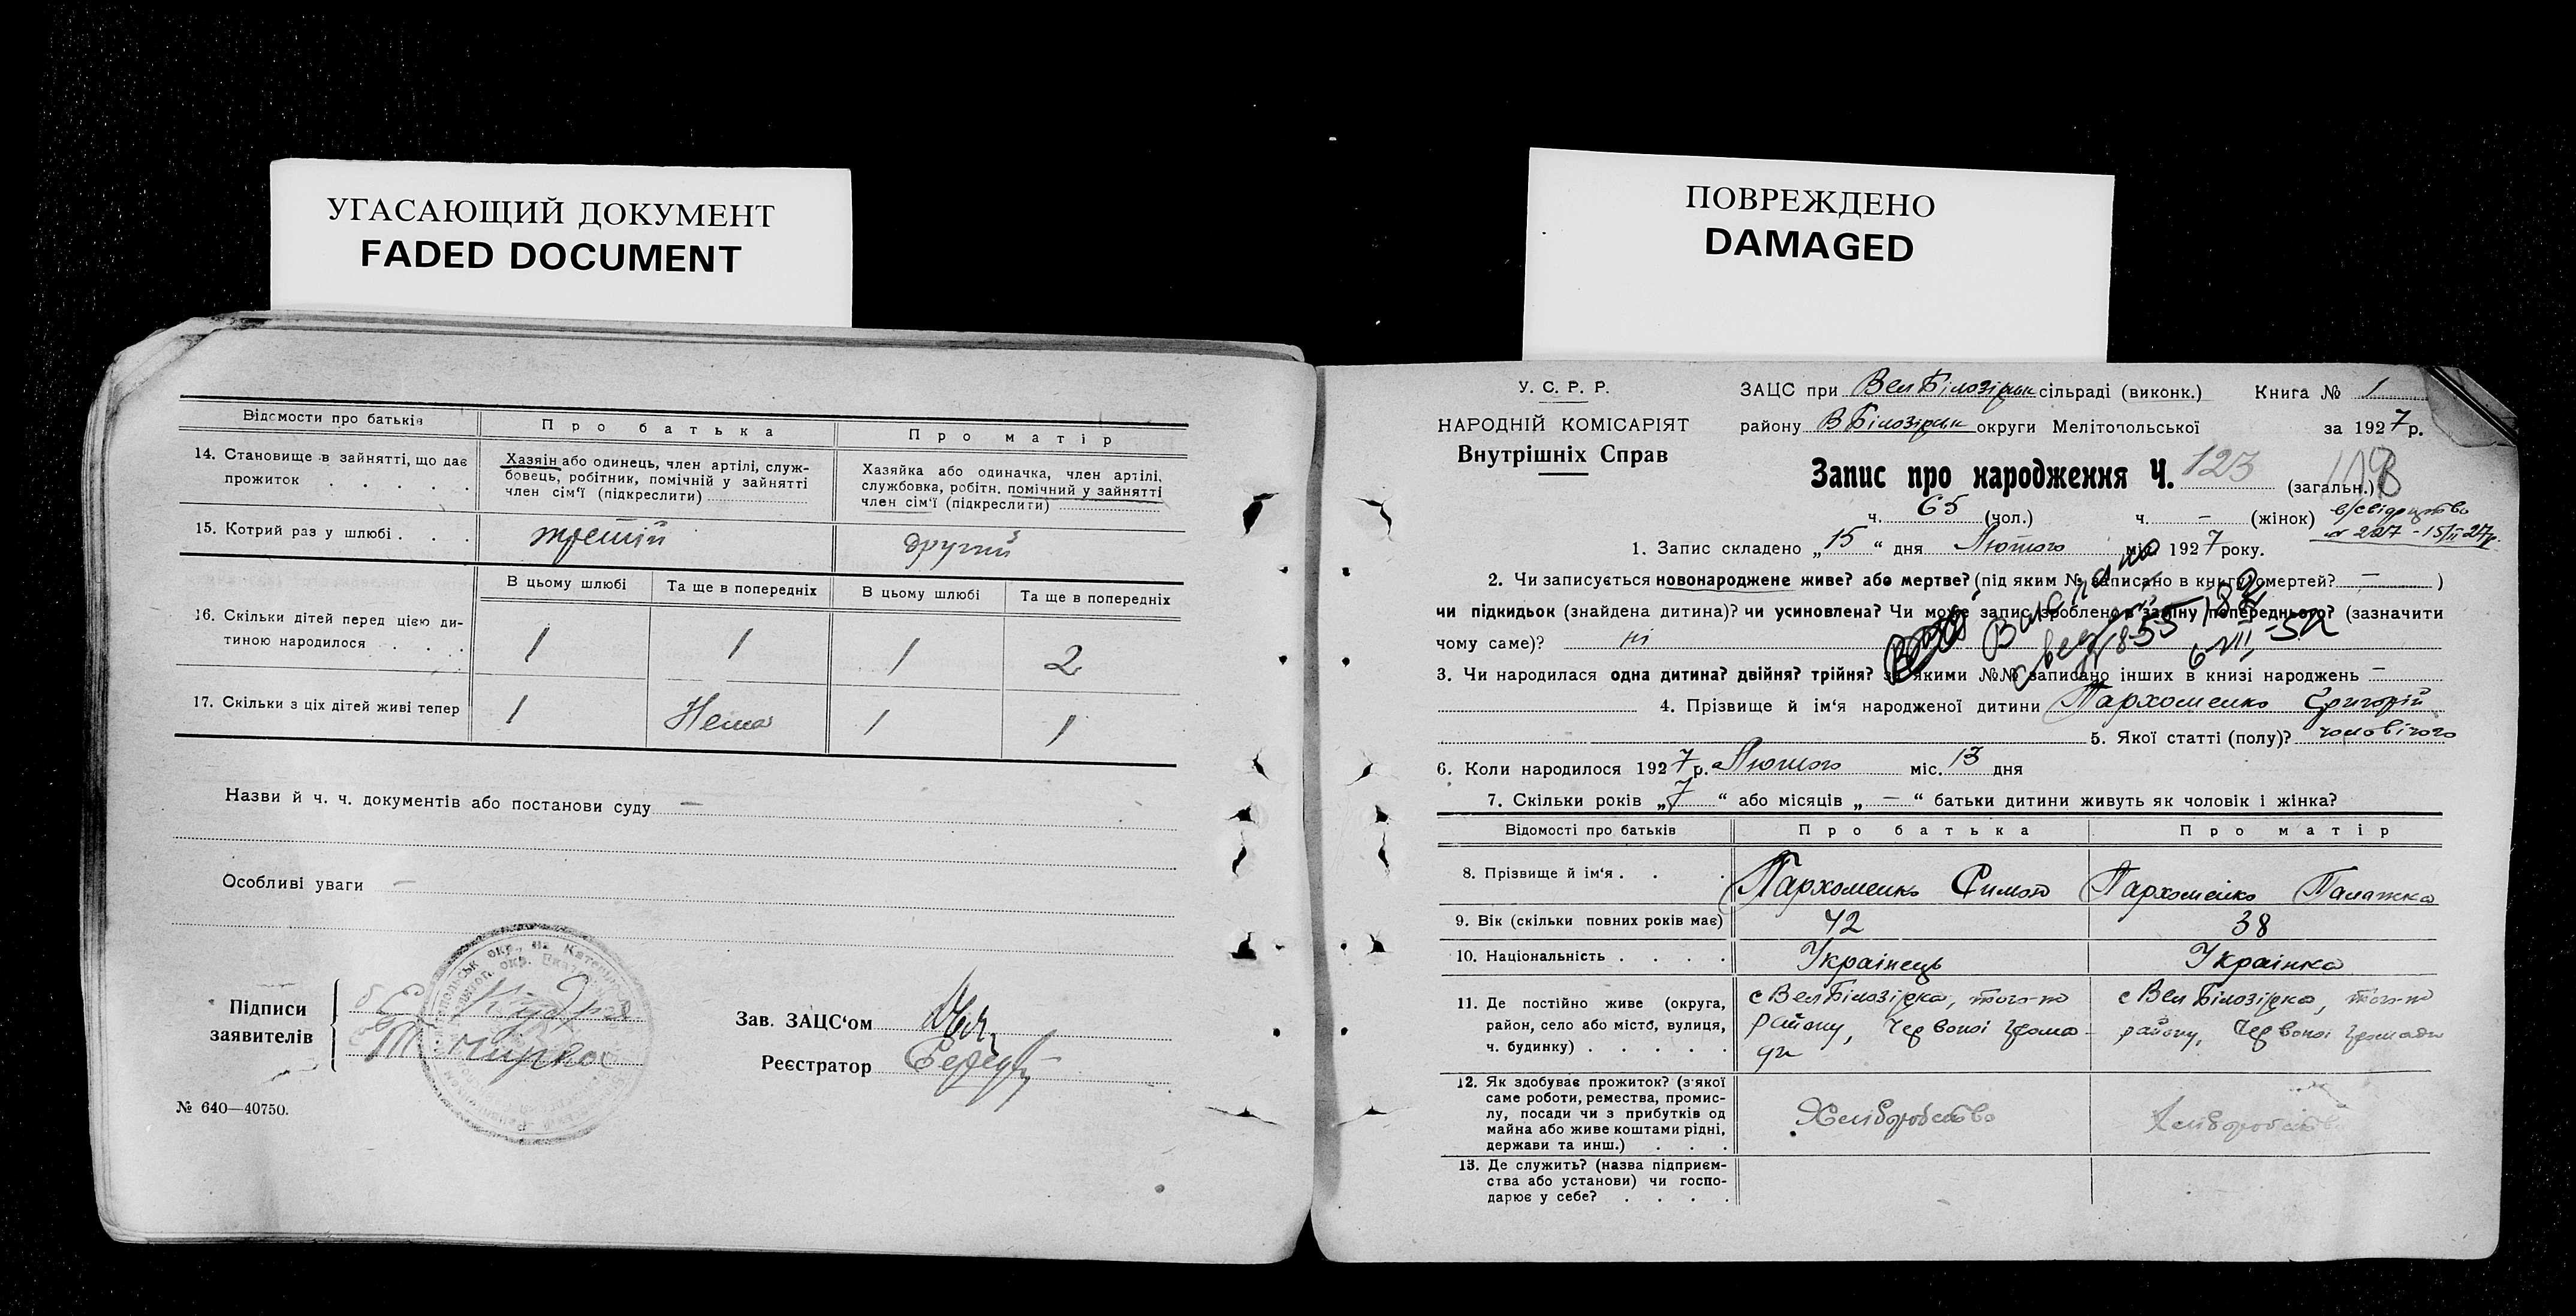 УГАСАЮЩИЙ ДОКУМЕНТ
FADED DOCUMENT
ПОВРЕЖДЕНО
DAMAGED
Відомости про батьків
Про батька
Про матір
14. Становище в зайнятті, що дає прожиток . . . . .
Хазяін або одинець, член артілі, служ-
бовець, робітник, помічній у зайнятті
член сім'ї (підкреслити)
Хазяйка або одиначка, член артілі,
службовка, робітн. помічний у зайнятті
член сім'ї (підкреслити)
15. Котрий раз у шлюбі . . . третій другий
В цьому шлюбі Та ще в попередніх В цьому шлюбі Та ще в попередніх
16. Скільки дітей перед цією ди-
тиною народилося . . . . 1 1 1 2
17. Скільки з ціх дітей живі тепер 1 Нема 1 1
Назви й ч. ч. документів або постанови суду —
Особливі уваги —
Підписи
заявителів
Кудря
Зав. ЗАЦС'ом
Реєстратор
№ 640—40750.
У. С. Р. Р.
НАРОДНІЙ КОМІСАРІЯТ
Внутрішніх Справ
ЗАЦС при Вел Білозірськ сільраді (виконк.) Книга № 1
району В Білозірськ округи Мелітопольської за 1927 р.
Запис про народження Ч. 123 (загальн.) 118
ч. 65 (чол.) ч. — (жінок)
в/свідоцтво
№ 227 - 15/II-27р.
1. Запис складено „15“ дня Лютого міс. 1927 року.
2. Чи записується новонароджене живе? або мертве? (під яким № записано в книгу смертей? — )
чи підкидьок (знайдена дитина)? чи усиновлена? Чи може запис зроблено в заміну попереднього? (зазначити
чому саме)? ні
3. Чи народилася одна дитина? двійня? трійня? за якими №№ записано інших в книзі народжень —
4. Прізвище й ім'я народженої дитини Пархоменко Григорій
5. Якої статті (полу)? чоловічого
6. Коли народилося 1927 р. Лютого міс. 13 дня
7. Скільки років „7“ або місяців „—“ батьки дитини живуть як чоловік і жінка?
Відомості про батьків
Про батька
Про матір
8. Прізвище й ім'я . . . Пархоменко Симон Пархоменко Палажка
9. Вік (скільки повних років має) 42 38
10. Національність . . . . Українець Українка
11. Де постійно живе (округа,
район, село або місто, вулиця,
ч. будинку) . . . . .
с Вел Білозірка, того-ж
району, Червоної Грома-
ди
с Вел Білозірка, того-ж
району, Червоної Громади
12. Як здобуває прожиток? (з якої
саме роботи, ремества, промис-
лу, посади чи з прибутків од
майна або живе коштами рідні,
держави та инш.) . . .
Хліборобство
Хліборобство
13. Де служить? (назва підприєм-
ства або установи) чи госпо-
дарює у себе? . . . .